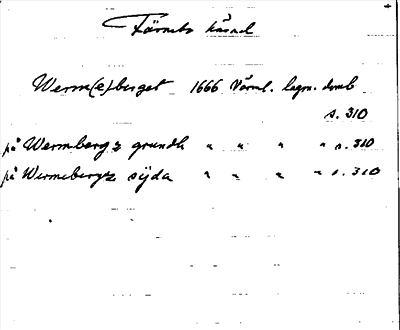 Färnebo härad
Werm(e)berget 1666 Värml. lagm. domb
s. 310
på Wermbergz grundh " " " " s. 310
på Wermebergz sijda " " " " s. 310